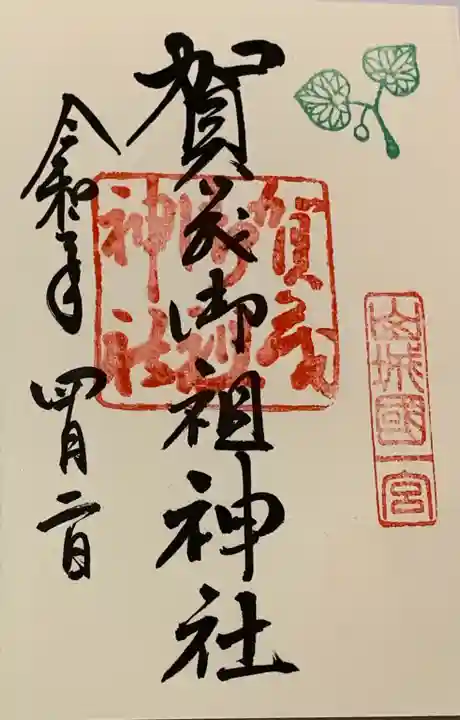 山城國一宮
賀茂御祖神社
賀茂
御祖
神社
令和二年 四月二日